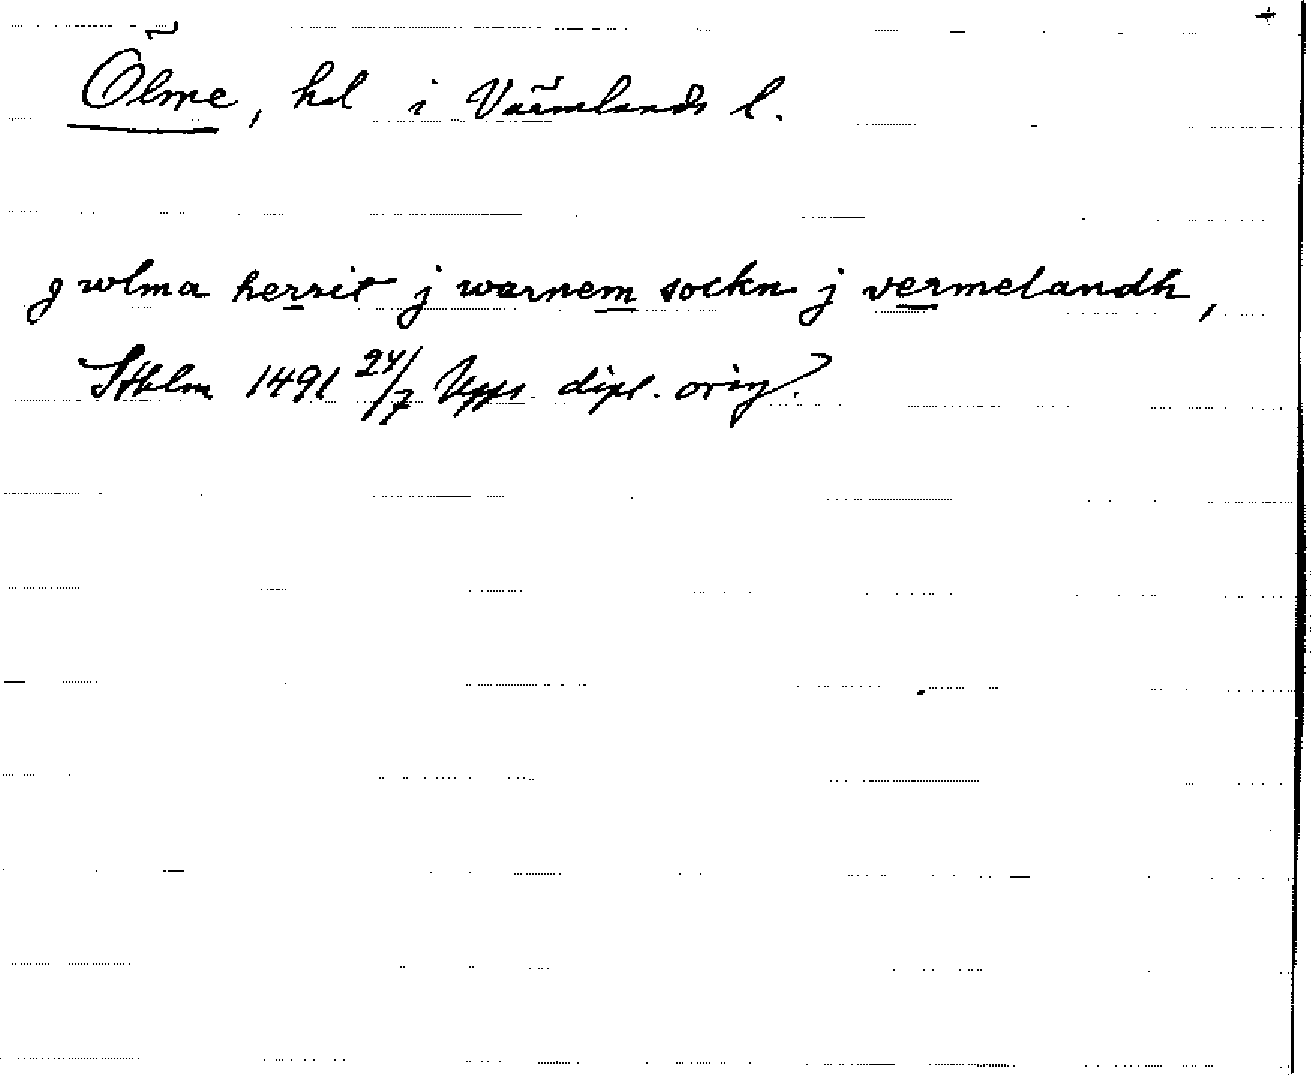 +
Ölme, hd i Värmlands l.
j wlma herrit j warnem sockn j vermelandh,
Sthlm 1491 24/7 Upps. dipl. orig.